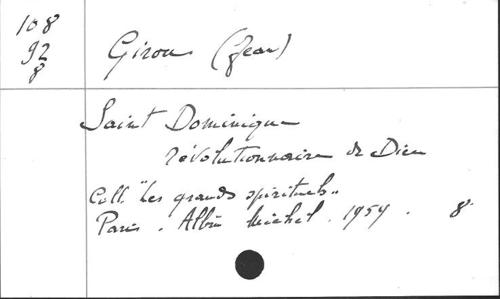 108
92
8
Girou (Jean)
Saint Dominique
révolutionnaire de Dieu
Coll. "Les grands spirituels"
Paris . Albin Michel . 1959 . 8°